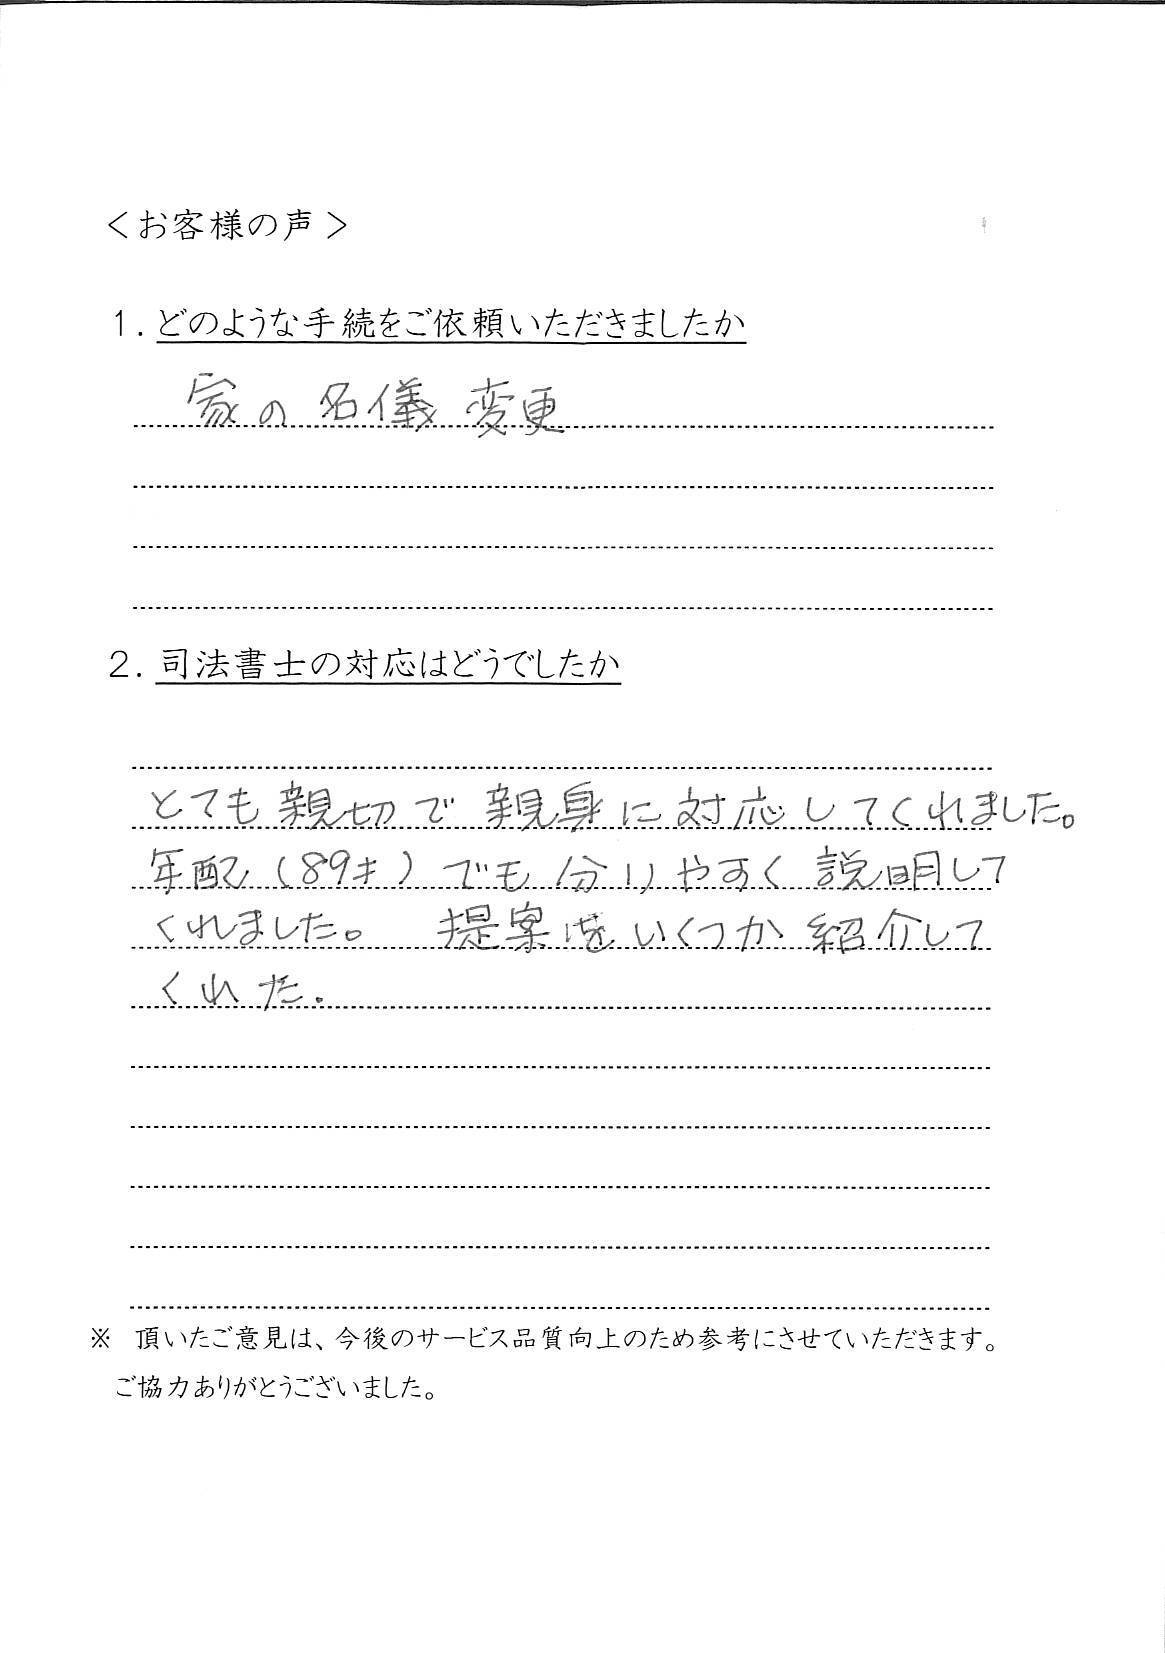 ＜お客様の声＞
1. どのような手続をご依頼いただきましたか
家の名儀変更
2. 司法書士の対応はどうでしたか
とても親切で親身に対応してくれました。
年配(89才)でも分りやすく説明して
くれました。 提案をいくつか紹介して
くれた.
※ 頂いたご意見は、今後のサービス品質向上のため参考にさせていただきます。
ご協力ありがとうございました。